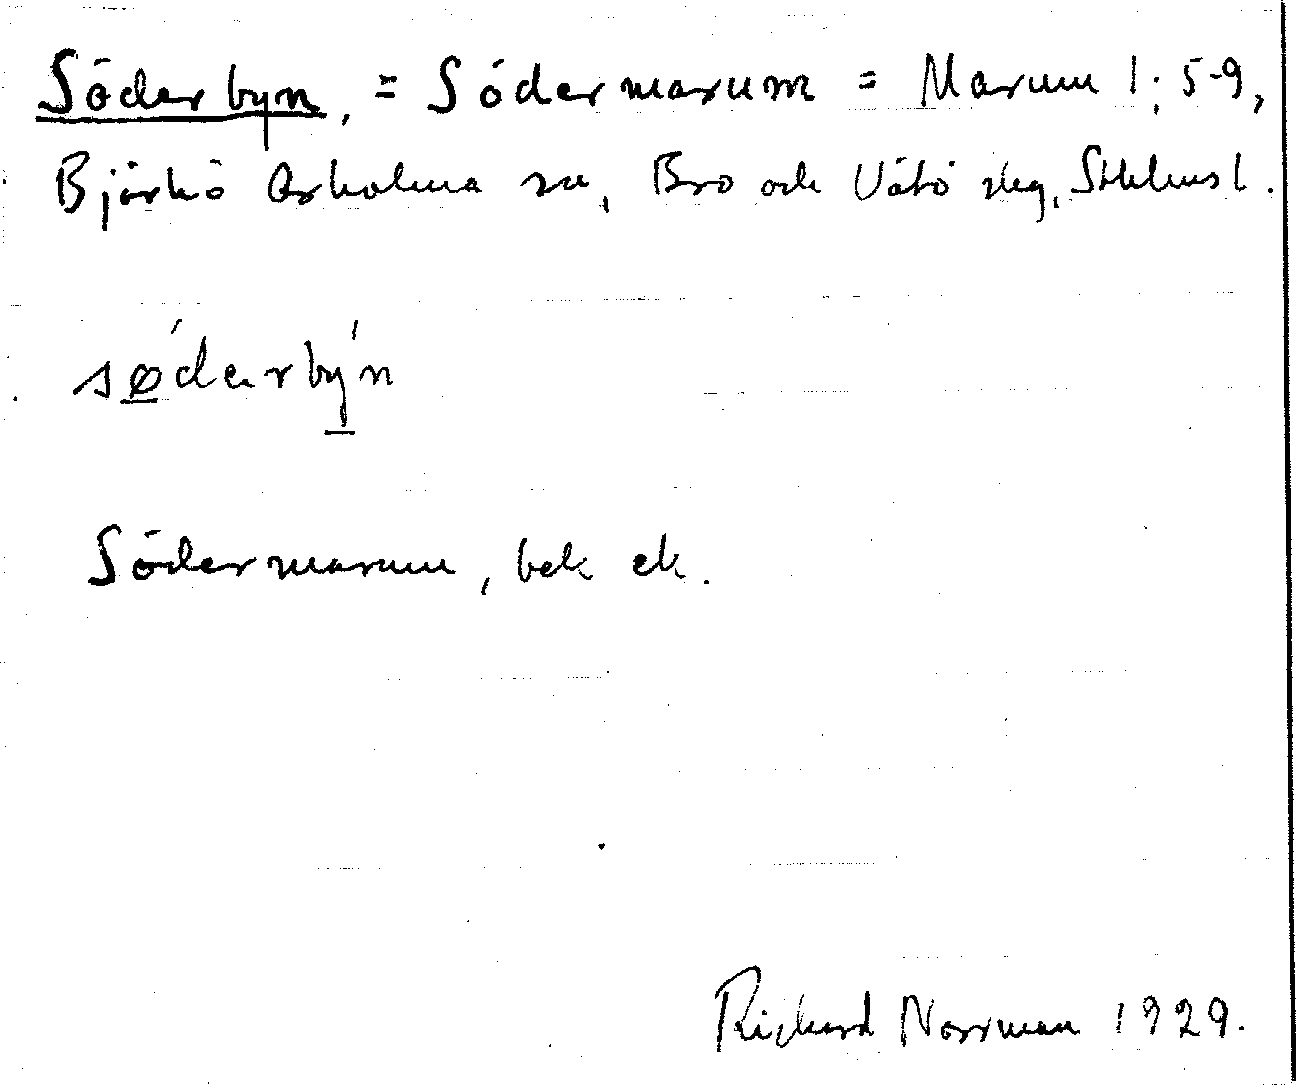 Söderbyn, = Södermarum = Marum 1:5-9,
Björkö Arholma sn, Bro och Vätö skg, Sthlms l.
sǿ̱derbý̱n
Södermarum, bek ek.
Richard Norrman 1929.